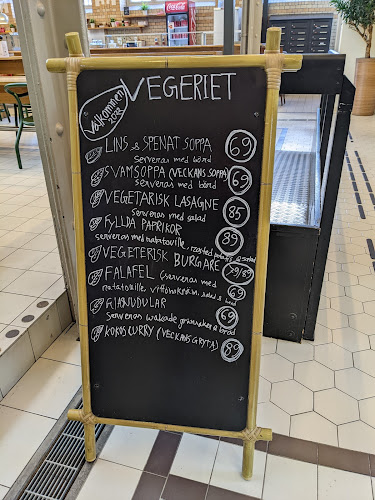 Coca-Cola
Välkommen
VEGERIET
LINS & SPENAT SOPPA 69
Serveras med bröd
SVAMSOPPA (VECKANS SOPPA) 69
Serveras med bröd
VEGETARISK LASAGNE 85
Serveras med salad
FYLLDA PAPRIKOR 89
serveras med ratatouille, roasted potatoes & salad
VEGETERISK BURGARE 79/89
FALAFEL (serveras med 69
ratatouille, vitlöksröra, salad & bröd
GLASNUDULAR 69
Serveras wokade grönsaker & bröd
KOKOSCURRY (VECKANS GRYTA) 89